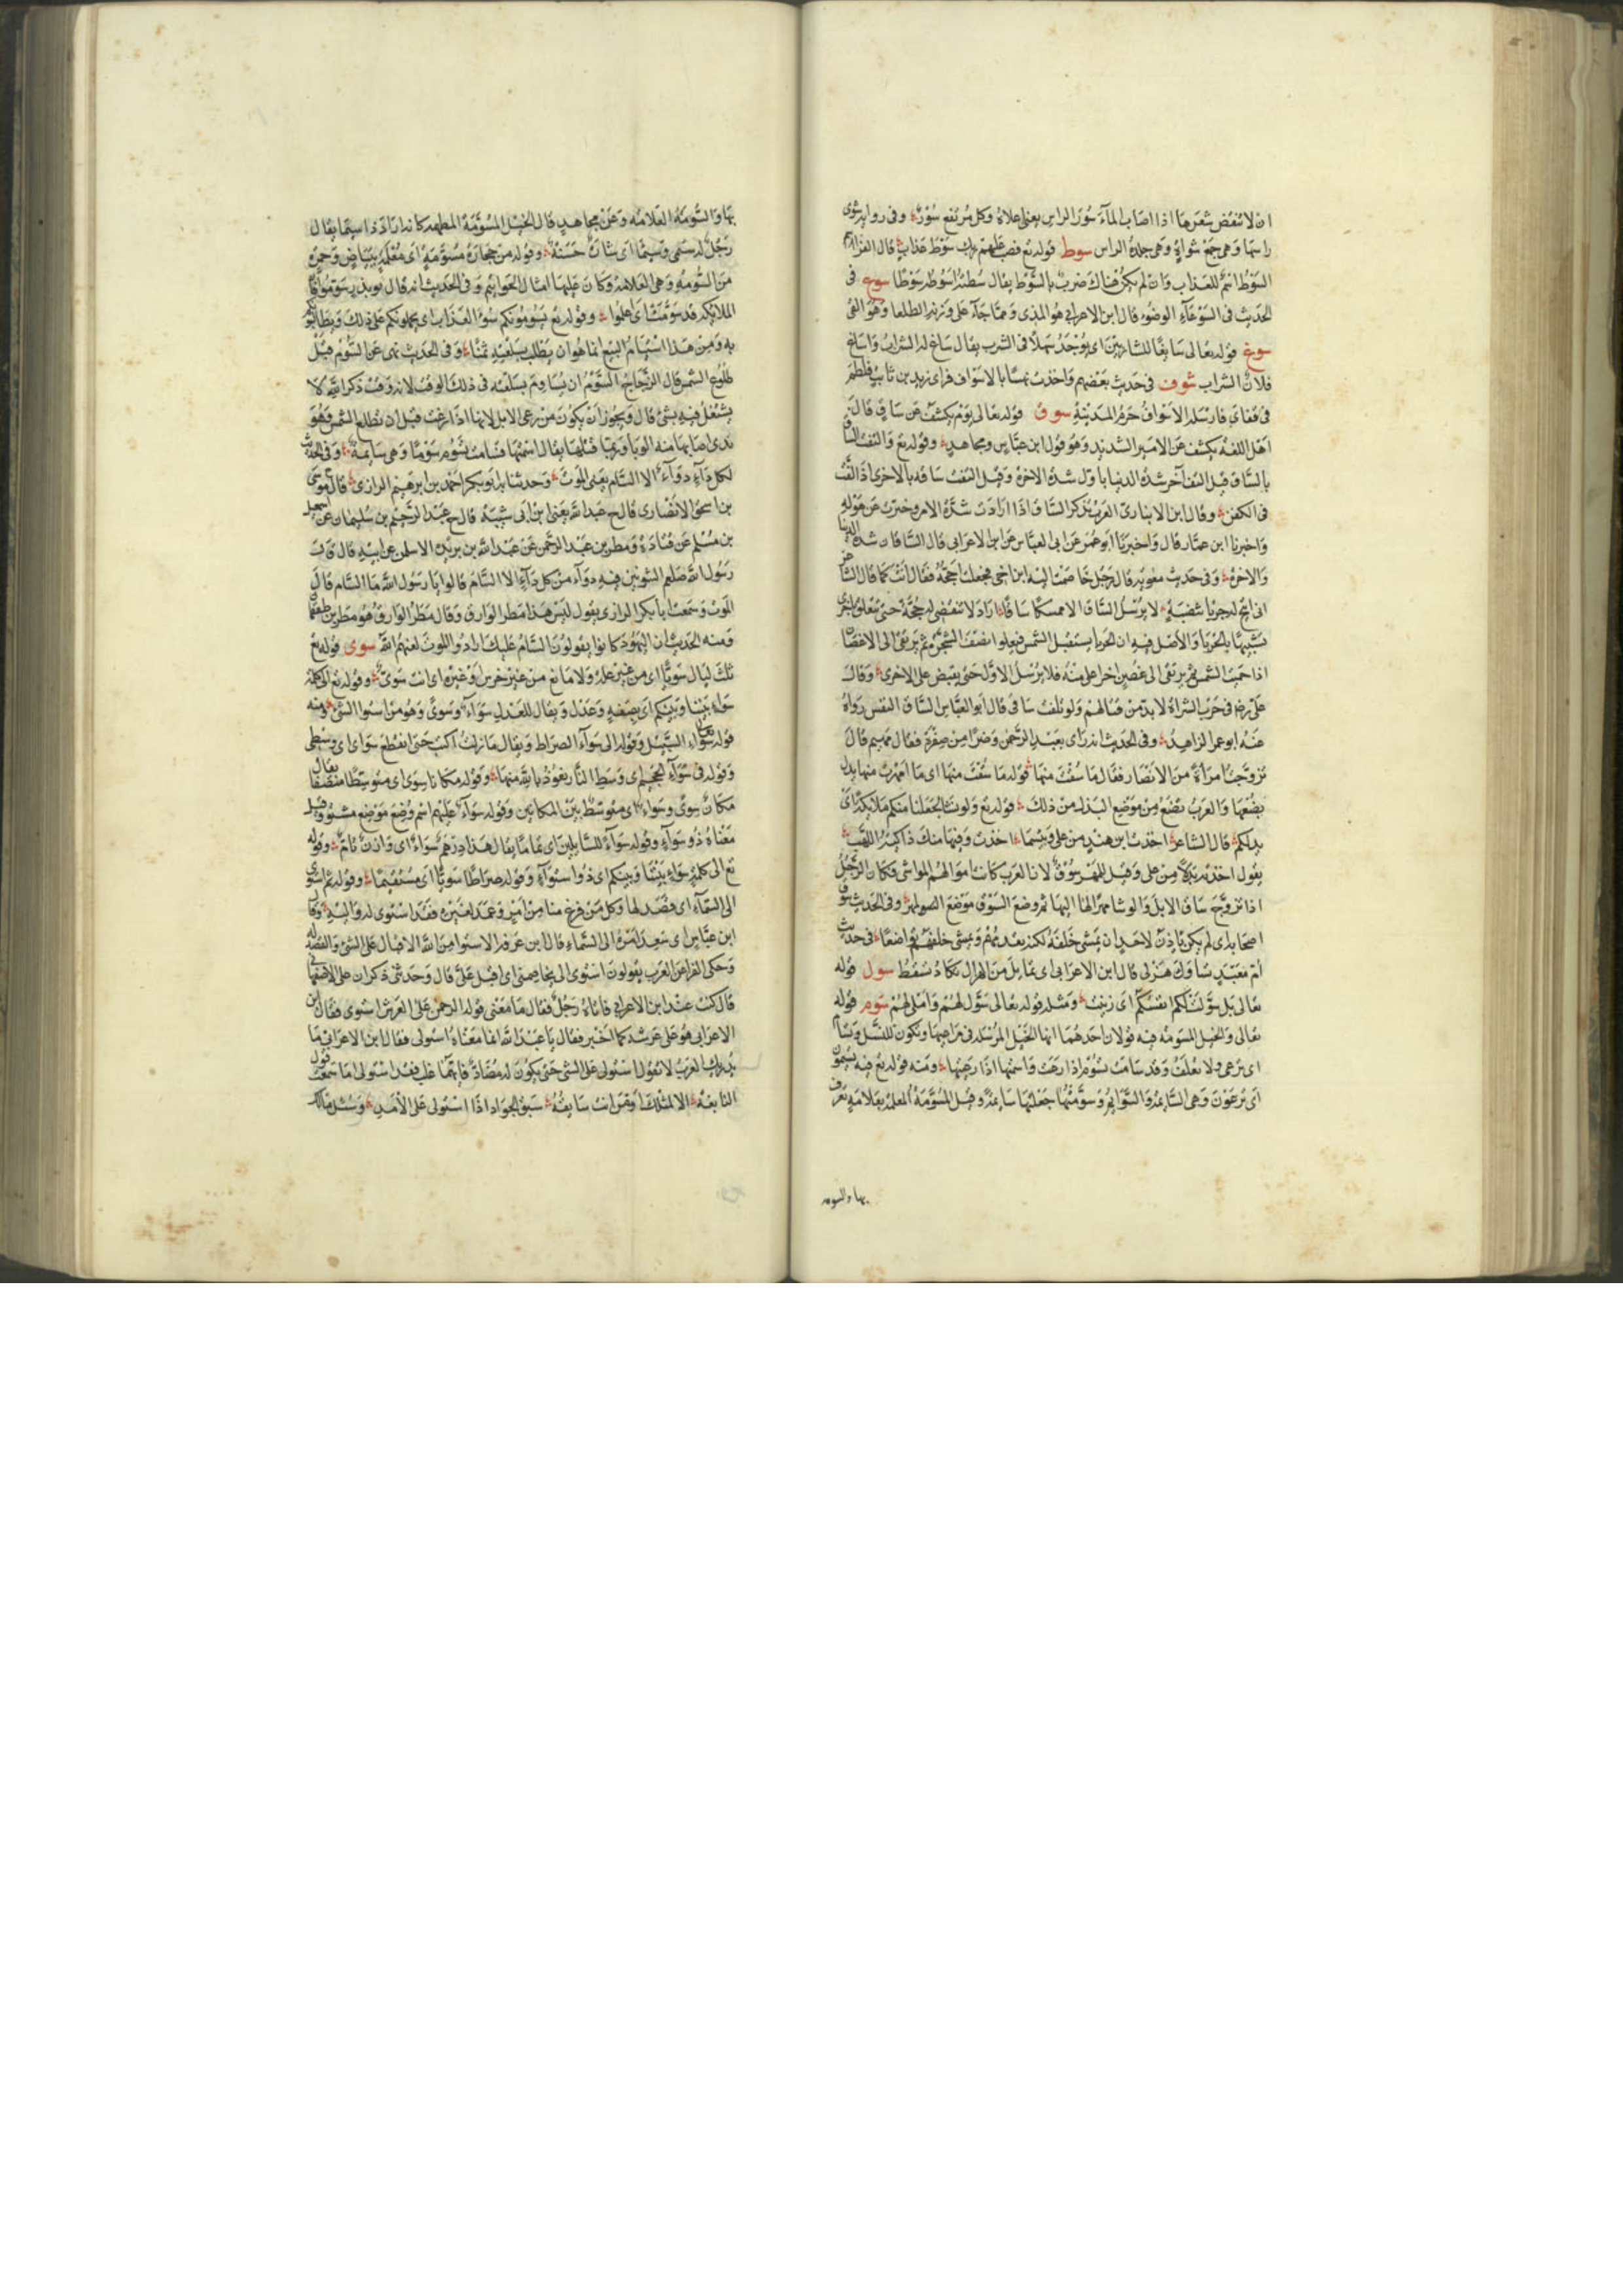 ان لا تنفض شعرها اذا اصاب المآء سُورَ الراس يعنى اعلاهُ وكل مُرتفع سُورٌ وفى رواية شوى
راسها وهى جمع شواةٍ وهى جلدة الراس سوط قوله تع فصب عليهم ربك سَوْط عذاب قال الفراء
السَّوْط اسم للعذاب وان لم يكن هناك ضرب بالسَّوط يقال سُطتُه اسوطه سَوْطا سوع فى
الحديث فى السَّوْعَآءِ الوضوء قال ابن الاعرابى هو المذى وممّا جآء على وزنه الطلعا وهو القى
سوغ قوله تعالى سَائغًا للشاربين اى يُوجَدُ سَهلًا فى الشرب يقال ساغ له الشراب واساغ
فلان الشراب سوف فى حديث بعضهم واخذت نهسًا بالاسواف فراى زيد بن ثابت فلطم
فى قفاى فارسله الاسوافُ حرمُ المدينة سوق قوله تعالى يَوْم يكشف عن ساق قال
اهل اللغة يكشف عن الامر الشديد وهو قول ابن عبّاس ومجاهد وقوله تع والتفت الساق
بالسَّاق قيل التف آخر شدة الدنيا باول شدة الاخرة وقيل التفت ساقه بالاخرى اذا لفّت
فى الكفن وقال ابن الانبارى العرب تذكر السَّاق اذا ارادت شدّة الامر وخبرت عن هوله
واخبرنا ابن عمّار قال واخبرنا ابو عمر عن ابى العباس عن ابن الاعرابى قال السّاقان شدة الدنيا
والاخرة وفى حديث معوية قال رجل خاصمت اليه ابن اخى فجعلت احجّهُ فقال انت كما قال الشاعر
انى اتيح له حربا تنضبةٍ لا يُرسل السَّاق الا ممسكا سَاقًا اراد لا تنقضى له حُجّة حتى يتعلق باخرى
تشبيهًا بالحربآ والاصل فيه ان الحربا يستقبل الشمس فيعلوا نصف الشجر ثم يرتقى الى الاغصان
اذا حميت الشمس ثم يرتقى الى غصن اخر اعلى منه فلا يُرسل الاوّل حتى يقبض على الاخرى وقال
على رضه فى حرب الشراة لا بد من قتالهم ولو تلفت ساقى قال ابو العبّاس السَّاق النفس رواهُ
عنه ابو عمر الزاهد وفى الحديث انه راى بعبد الرحمن وضرًا من صفرة فقال مهيم قال
تزوّجتُ امرأة من الانصار فقال ما سُقتَ منها قوله ما سُقْتَ منها اى ما امهرتَ منها بدل
بضعها والعرب تضع مِن موضع البدل من ذلك قوله تع ولو نشآ لجعلنا منكم ملائكة اى
بدلكم قال الشاعر اخذت ابن هندٍ من على وبئسما اخذت وفيها منك ذاكية اللهب
يقول اخذته بدلًا من على وقيل للمهر سُوق لان العرب كانت اموالهم المواشى فكان الرجل
اذا تزوّج ساق الابل والوشا مهرًا لها اليها ثم وضع السَّوْق موضع الصولهر وفى الحديث سوق
اصحابه اى لم يكن ياذن لاحدٍ ان يمشى خلفهُ لكنه يقدّمهُم ويمشى خلفهم تواضعًا فى حديث
ام معبد تساوك هزلى قال ابن الاعرابى اى تمايل من الهزال تكاد تسقط سول قوله
تعالى بل سوّلت لكم انفسكم اى زينت ومثله قوله تعالى سوّل لهم واملى لهم سوم قوله
تعالى والخيل المسوّمة فيه قولان احدهما انها الخيل المرسلة فى مراعيها وتكون للنسل وتسام
اى ترعى ولا تعلف وقد سامت تسوم اذا رعت واسمتها اذا رعيتها ومنه قوله تع فيه تسيمون
اى ترعون وهى السَّائمة والسَّوائم وسَوّمتُها جعلتها سَائمةً وقيل المسوّمة المعلمة بعلامة تعرف
بها والسومه
بها والسُّومَةُ العلامة وعن مجاهد قال الخيل المسَوّمة المطهمة كانه اراد ذا سيما يقال
رجُل له سيمى وسيمآ اى شان حسنة وقوله من حجارة مسَوّمةٍ اى معلمة ببياض وحمرة
من السُّومة وهى العلامة وكان عليها امثال الخواتيم وفى الحديث انه قال يوم بدر سوّموا فان
الملائكة قد سوّمَتْ اى اعلموا وقوله تع يسومونكم سوء العذاب اى يحملونكم على ذلك ويطالبونكم
به ومن هذا استيام البيع انما هو ان يطلب بسلعته ثمنًا وفى الحديث نهى عن السَّوْم قبل
طلوع الشمس قال الزجّاج السَّوْمُ ان يُساوم بسلعته فى ذلك الوقت لانه وقت ذكر الله لا
يشتغل فيه بشئ قال ويجوز ان يكون من رعى الابل لانها اذا رعت قبل ان تطلع الشمس وهو
ندى اصابها منه الوبآ وربما قتلها يقال اسمتها فسامت تسوم سَوْمًا وهى سائمة وفى الحديث
لكل دآءٍ دوآء الا السَّام يعنى الموت وحدثنا به ابو بكر احمد بن ابرهيم الرازى قال ح موسى
بن اسحق الانصارى قال ح عبد الله يعنى ابن ابى شيبة قال ح عبد الرّحيم بن سليمان عن اسمعيل
بن مُسلم عن قتادة ومطر بن عبد الرحمن عن عبد الله بن بريدة الاسلمى عن ابيه قال قال
رسُول الله صلعم الشونيز فيه دوآء من كل دآءٍ الا السَّام قالوا يا رسُول الله ما السَّام قال
الموت وسمعت ابا بكر الرازى يقول ليس هذا مطر الوارق وقال مطر الوارق هو مطر بن طهمان
ومنه الحديث ان اليهُود كانوا يقولون السَّام عليك ارادوا الموت لعنهم الله سوى قوله تع
ثلث ليال سويًّا اى من غير علّة ولا مانع من غير خرس وغيره اى انت سوىّ وقوله تع الى كلمة
سوآءٍ بيننا وبينكم اى نصفةٍ وعدل ويقال للعدل سوآء وسوىً وهو من استوآ الشئ ومنه
قوله سوآء السَّبيل وقوله الى سوآء الصراط ويقال ما زلت اكتب حتى انقطع سواى اى وسطى
وقوله فى سوآء الجحيم اى وسط النار نعوذ بالله منها وقوله مكانا سوى اى متوسّطًا منصفا يقال
مكان سوىً وسواء اى متوسّط بين المكانين وقوله سوآء عليهم اسم وُضع موضع مستوٍ وقيل
معناهُ ذو سوآءٍ وقوله سوآءً للسَّائلين اى تمامًا يقال هذا درهم سوآء اى وازن تام وقوله
تع الى كلمةٍ سوآءٍ بيننا وبينكم اى ذوا استوآءٍ وقوله صراطًا سويًّا اى مستقيمًا وقوله ثم استوى
الى السّمآء اى قصد لها وكل من فرغ منا من امر وعمد لغيره فقد استوى له واليه وقال
ابن عبّاس اى صعد امرهُ الى السَّماء قال ابن عرفه الاستوا من الله الاقبال على الشئ والقصد له
وحكى الفرآ عن العرب يقولون استوى الى يخاصمنى اى اقبل علىّ قال وحدثنى ذكران على الاصفهانى
قال كنت عند ابن الاعرابى فاتاهُ رجُل فقال ما معنى قوله الرحمن على العرش استوى فقال ابن
الاعرابى هو على عرشه كما اخبر فقال يا عبد الله انما معناهُ استولى فقال ابن الاعرابى ما
يُدريك العرب لا تقول استولى على الشئ حتى يكون له مُضادّ فايّهما غلب فقد استولى اما سمعت قول
النابغة الا لمثلك او من انت سابقهُ سبق الجواد اذا استولى على الامد وسُئل مالك